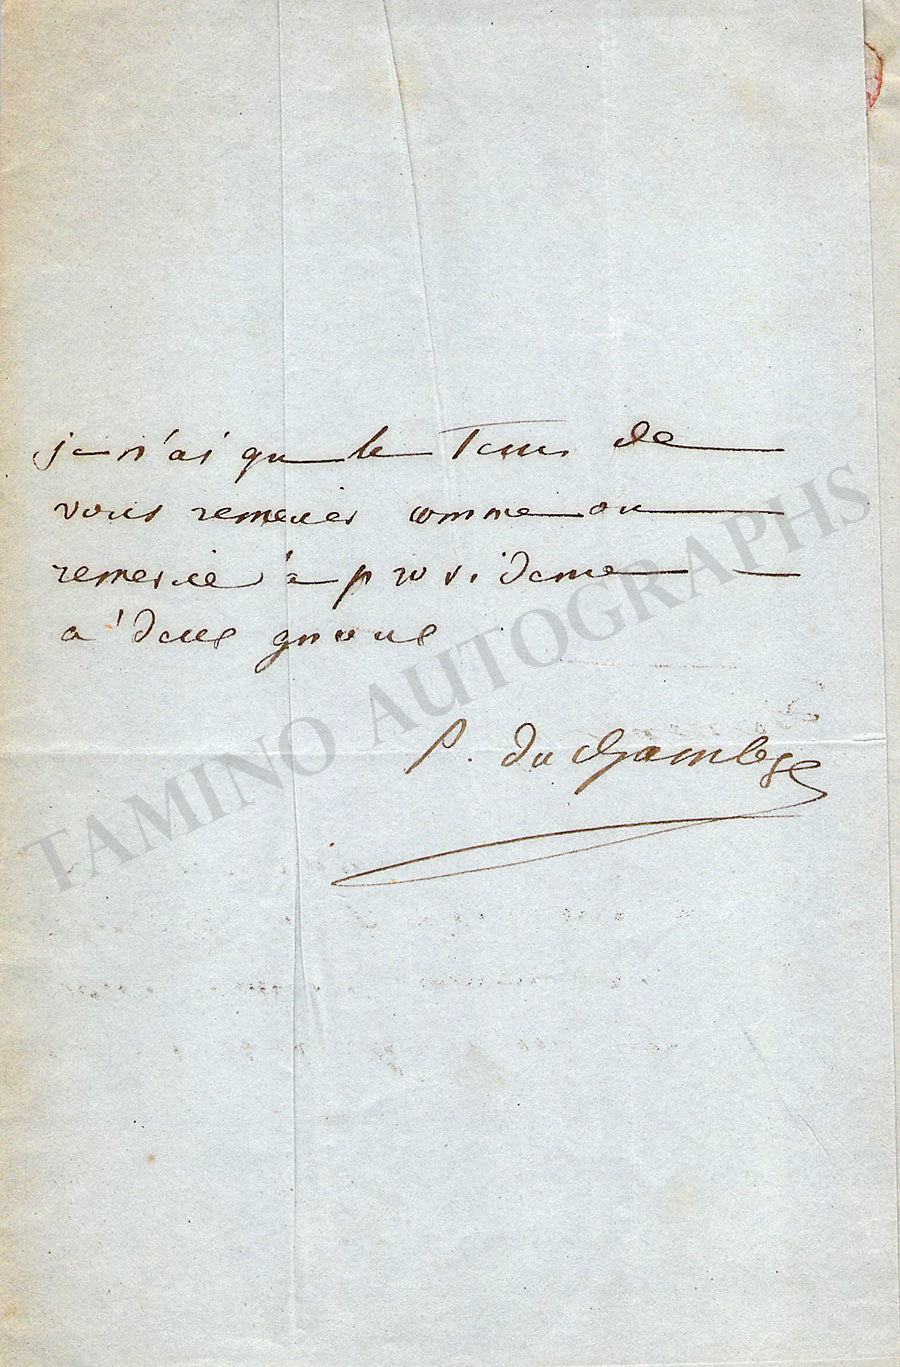 je n'ai que le Tems de
vous remercier comme on
remercie la providence
a deux genoux
P. du chambge
TAMINO AUTOGRAPHS